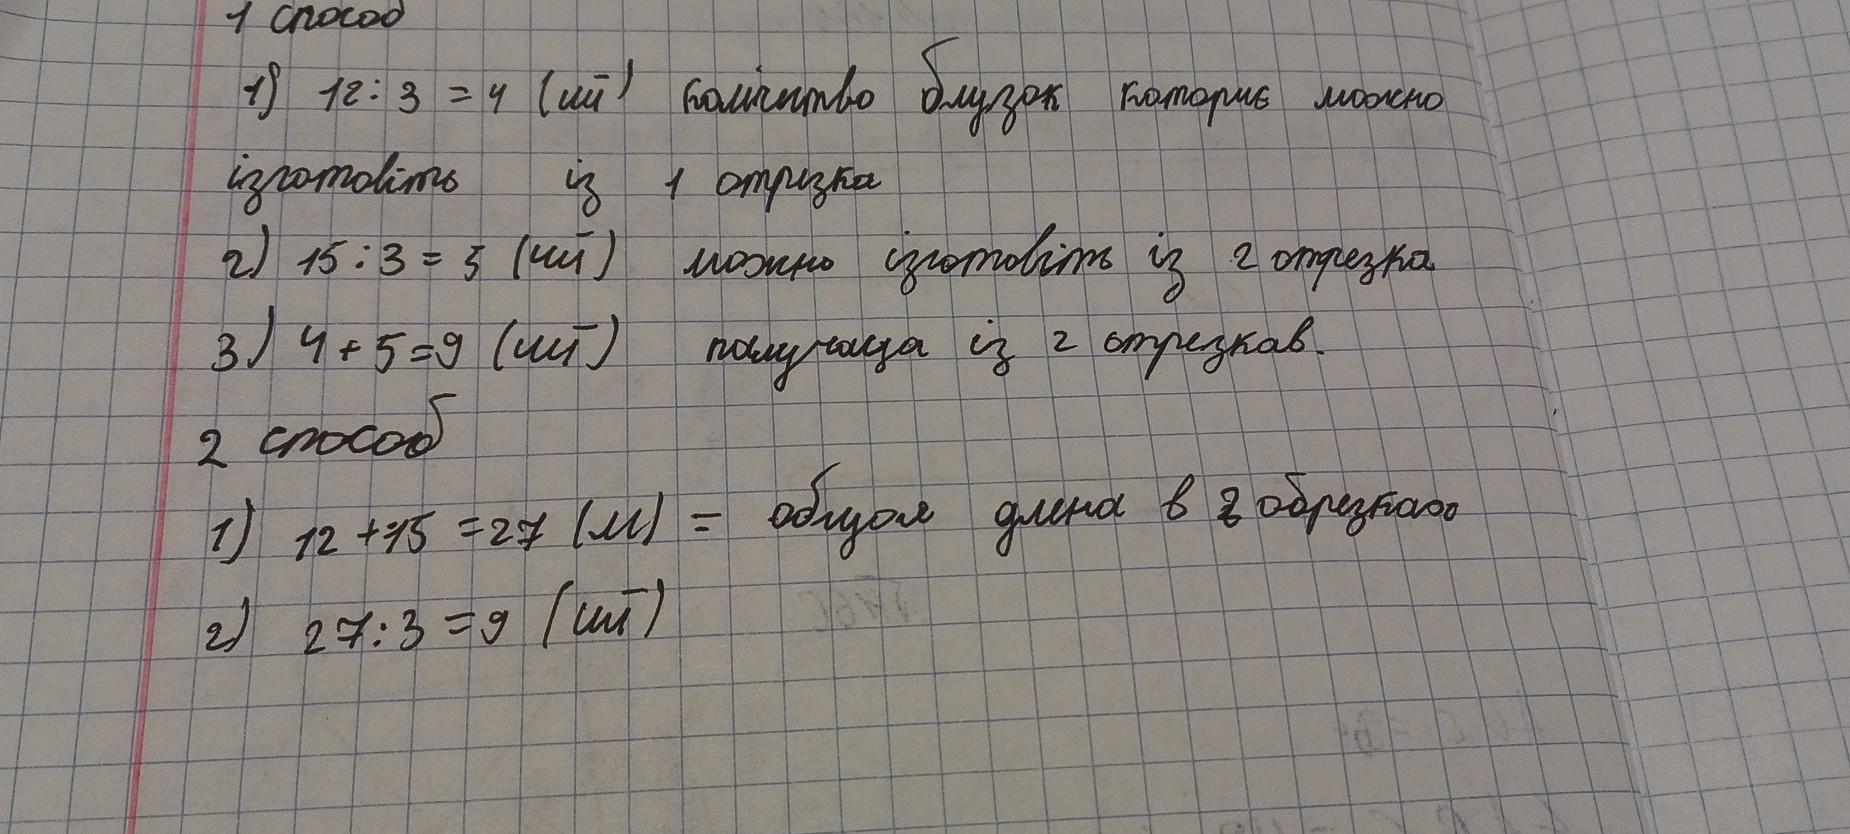 1 способ
1) 12:3=4 (шт) колічество блузок которіє можно
ізготовіть із 1 отрезка
2) 15:3=5 (шт) можно ізготовіть із 2 отрезка
3) 4+5=9 (шт) получаца із 2 отрезкав.
2 способ
1) 12+15=27 (м) = общая длена в 2 обрезках
2) 27:3=9 (шт)